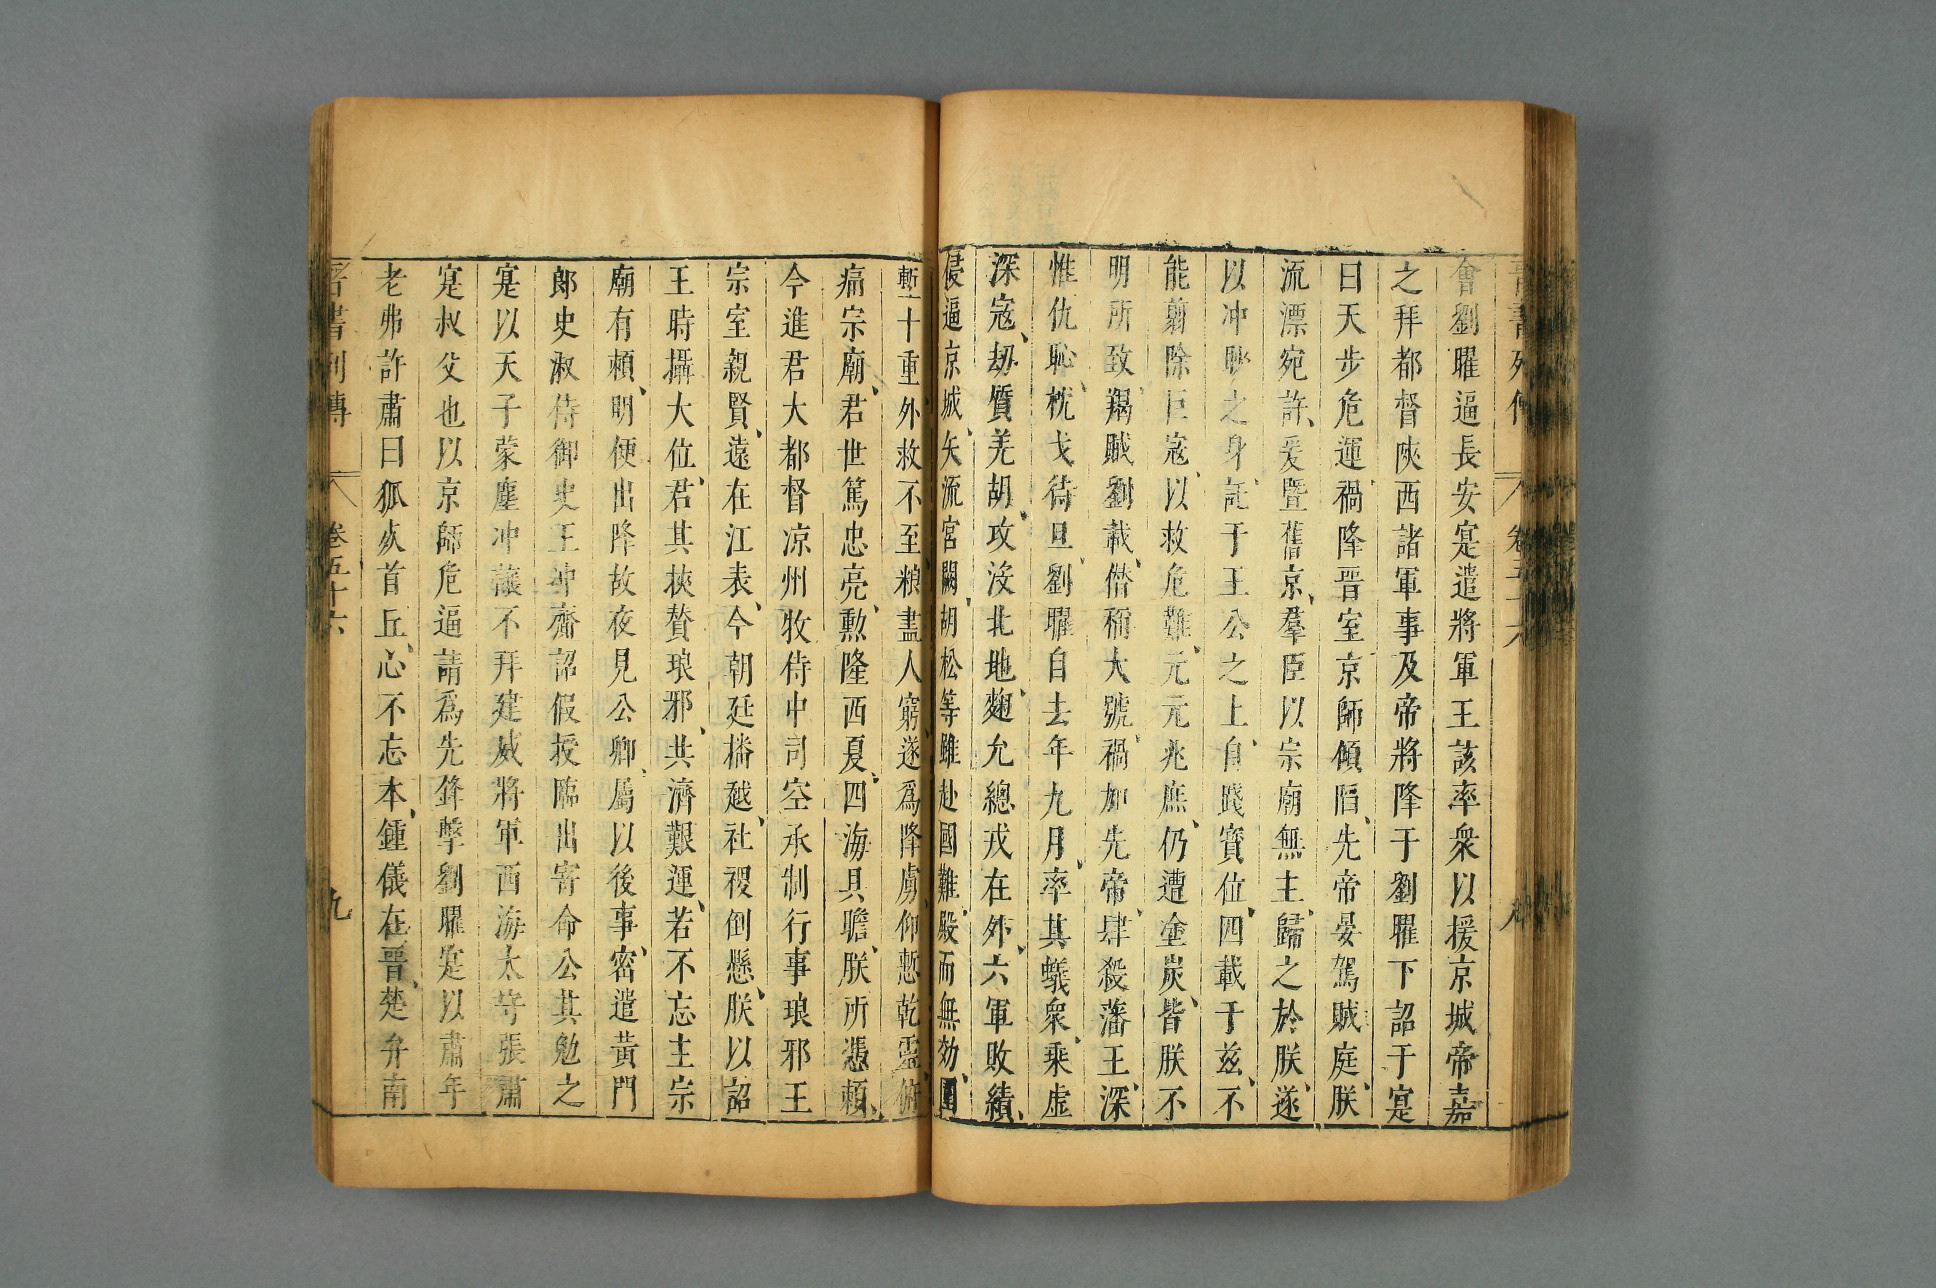 會劉曜逼長安寔遣將軍王該率衆以援京城帝嘉
之拜都督陝西諸軍事及帝將降于劉曜下詔于寔
曰天步危運禍降晉室京師傾陷先帝晏駕賊庭朕
流漂宛許爰暨舊京羣臣以宗廟無主歸之於朕遂
以冲眇之身託于王公之上自踐寶位四載于兹不
能翦除巨寇以救危難元元兆庶仍遭塗炭皆朕不
明所致羯賊劉載僭稱大號禍加先帝肆殺藩王深
惟仇恥枕戈待旦劉曜自去年九月率其蟻衆乘虛
深寇劫質羌胡攻沒北地麴允總戎在外六軍敗績
侵逼京城矢流宮闕胡松等雖赴國難殿而無効圍
塹十重外救不至粮盡人窮遂爲降虜仰慙乾靈俯
痛宗廟君世篤忠亮勳隆西夏四海具瞻朕所憑賴
今進君大都督凉州牧侍中司空承制行事琅邪王
宗室親賢遠在江表今朝廷播越社稷倒懸朕以詔
王時攝大位君其挾賛琅邪共濟艱運若不忘主宗
廟有賴明便出降故夜見公卿屬以後事密遣黃門
郎史淑侍御史王冲齎詔假授臨出寄命公其勉之
寔以天子蒙塵冲讓不拜建威將軍西海太守張肅
寔叔父也以京師危逼請爲先鋒擊劉曜寔以肅年
老弗許肅曰狐死首丘心不忘本鍾儀在晉楚弁南
晉書列傳 卷五十六 九